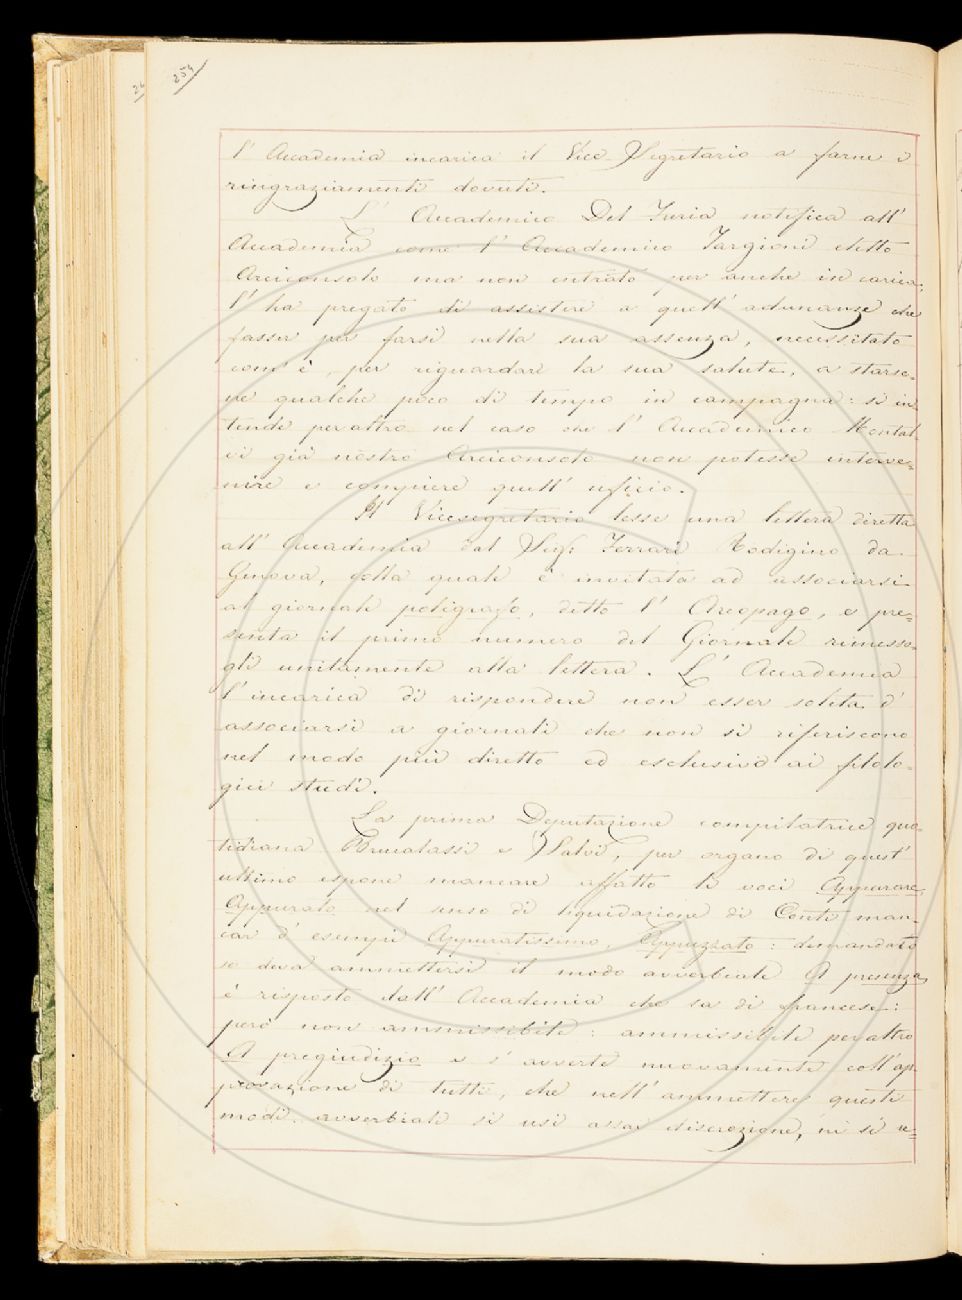 254
l' Accademia incarica il Vice Segretario a farne i
ringraziamenti dovuti.
L' Accademico Del Furia notifica all'
Accademia come l' Accademico Targioni eletto
Arciconsolo ma non entrato per anche in carica,
l' ha pregato di assistere a quell' adunanze che
fosser per farsi nella sua assenza, necessitato
com' è, per riguardare la sua salute, a starse-
ne qualche poco di tempo in campagna: s' in-
tende peraltro nel caso che l' Accademico Montal-
vi già nostro Arciconsolo non potesse interve-
nire e compiere quell' uficio.
Il Vicesegretario lesse una lettera diretta
all' Accademia dal Sig: Ferrari Rodigino da
Genova, colla quale è invitata ad associarsi
al giornale poligrafo, detto l' Areopago, e pre-
senta il primo numero del Giornale rimesso-
gli unitamente alla lettera. L' Accademia
l' incarica di rispondere non esser solita d'
associarsi a giornali che non si riferiscono
nel modo più diretto ed esclusivo ai filolo-
gici studi.
La prima Deputazione compilatrice quo-
tidiana Brucalassi e Salvi, per organo di quest'
ultimo espone mancare affatto le voci Appurare,
Appurato nel senso di liquidazione di Conti man-
car d' esempi Appuratissimo, Appuzzato: domandato
se deva ammettersi il modo avverbeale A presenza
è risposto dall' Accademia che sa di francese:
però non ammissibile: ammissibile peraltro
A pregiudizio e s' avverte nuovamente coll' ap-
provazione di tutti, che nell' ammettere questi
modi avverbiali si usi assai discrezione, nè si re-